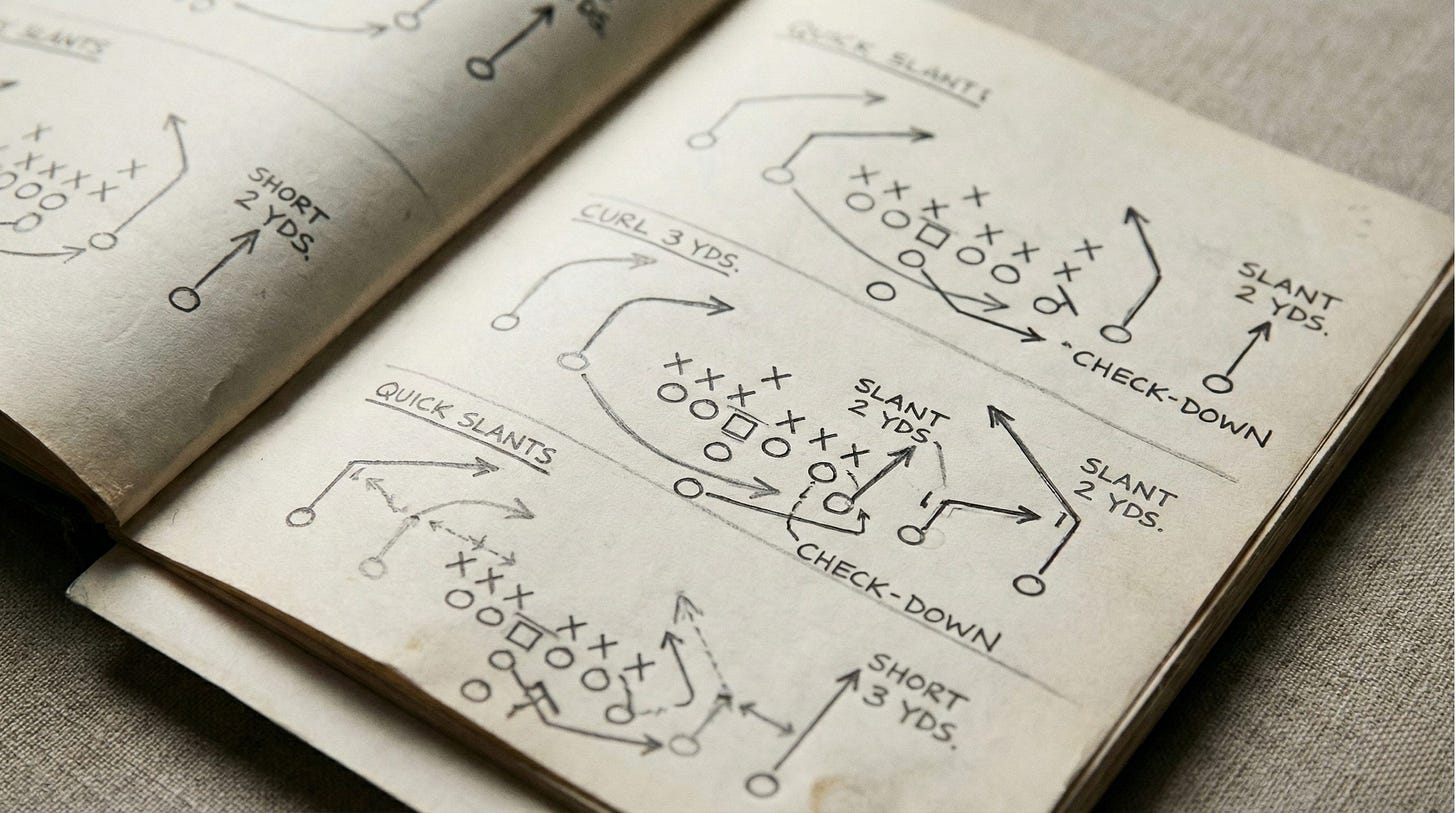 YDS.
SLANTS
SHORT
2 YDS.
QUICK SLANTS
SLANT
2 YDS.
"CHECK-DOWN
CURL 3 YDS.
SLANT
2 YDS.
SLANT
2 YDS.
CHECK-DOWN
QUICK SLANTS
SHORT
3 YDS.